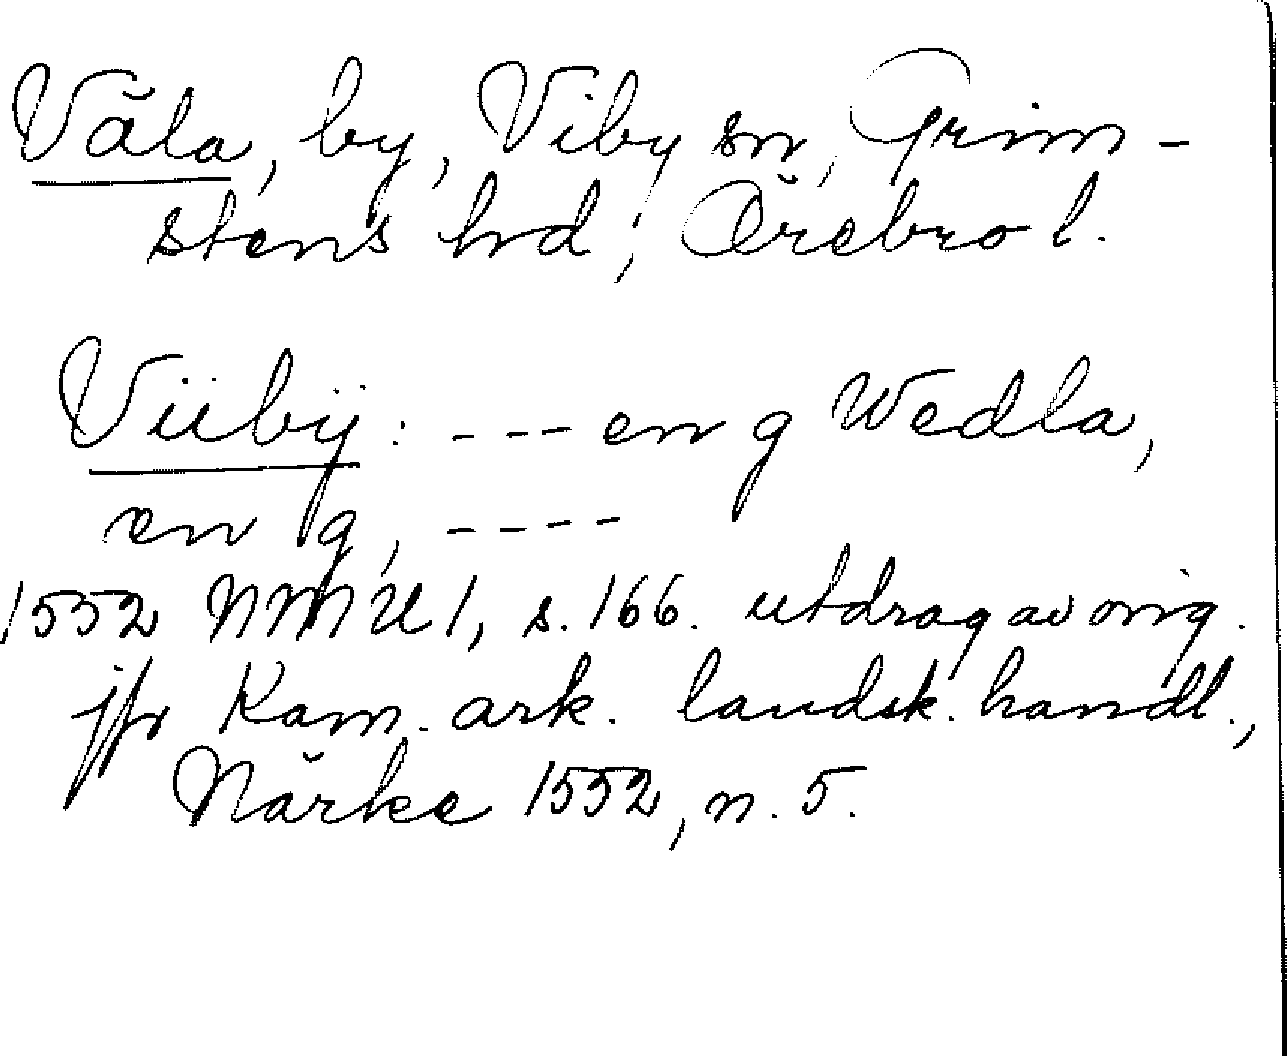 Väla, by, Viby sn, Grim-
stens hrd, Örebro l.
Viibij: --- en g Wedla,
en g, ----
1552 NMU 1, s. 166. utdrag av orig.
jfr Kam. ark. landsk. handl.,
Närke 1552, n. 5.